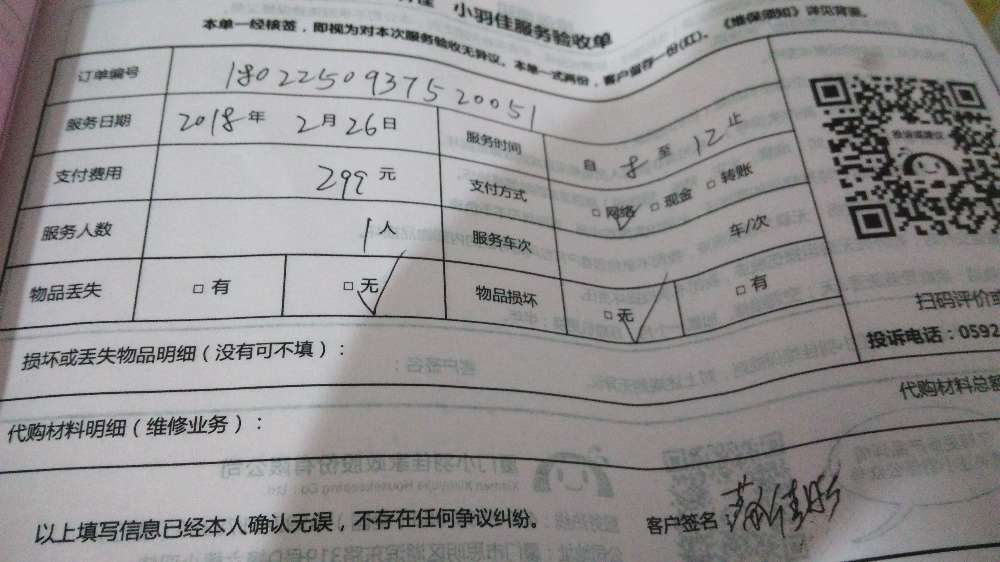 小羽佳服务验收单
本单一经核签，即视为对本次服务验收无异议。本单一式两份，客户留存一份(红)。《维保须知》详见背面。
订单编号 1802250937520051
服务日期 2018年 2月26日 服务时间 自 8 至 12 止
支付费用 299 元 支付方式 □网络 □现金 □转账
服务人数 1人 服务车次 车/次
物品丢失 □ 有 □ 无 物品损坏 □无 □有
投诉或建议
扫码评价或
投诉电话：0592
损坏或丢失物品明细（没有可不填）：
代购材料总额
代购材料明细（维修业务）：
以上填写信息已经本人确认无误，不存在任何争议纠纷。 客户签名：